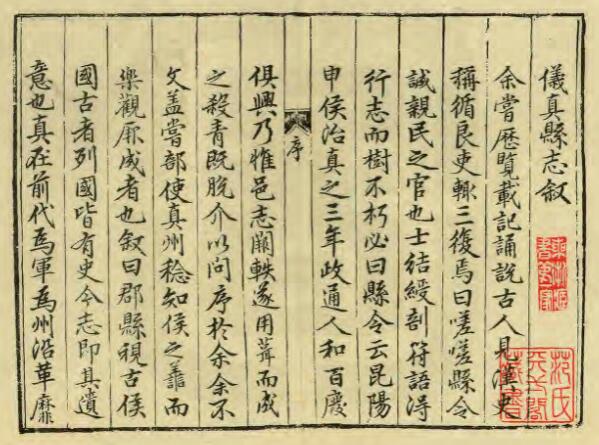 儀真縣志叙
余嘗歷覽載記誦說古人見漢史
稱循良吏輒三復焉曰嗟嗟縣令
誠親民之官也士結綬剖符語得
行志而樹不朽必曰縣令云昆陽
申侯治真之三年政通人和百廢
序
俱興乃惟邑志闕軼遂用葺而成
之殺青既脫介以問序於余余不
文蓋嘗部使真州稔知侯之而
樂觀厥成者也叙曰郡縣視古侯
國古者列國皆有史今志即其遺
意也真在前代爲軍爲州沿革靡
范氏
天一閣
藏書